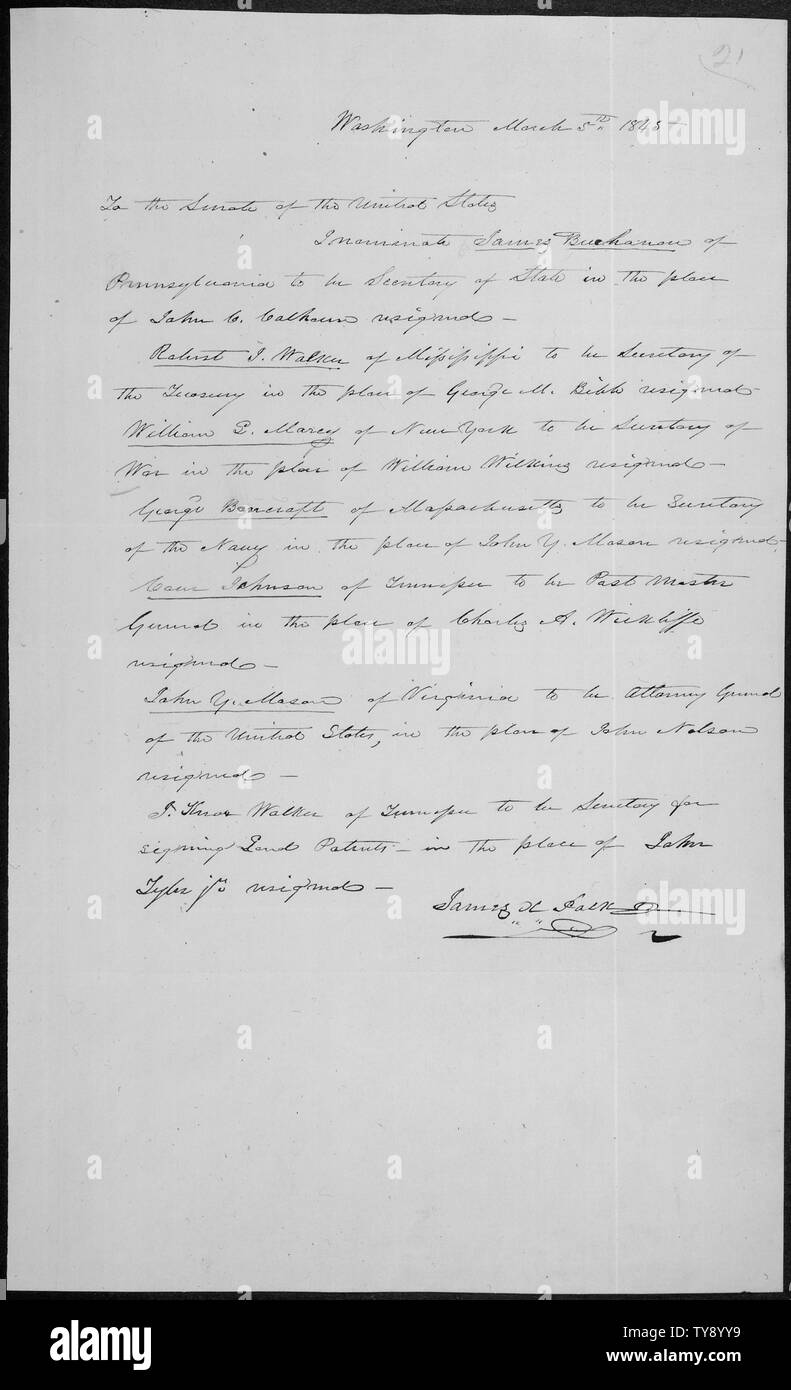 21
Washington March 5th 1845
To the Senate of the United States
I nominate James Buchanan of
Pennsylvania to be Secretary of State in the place
of John C. Calhoun resigned —
Robert J. Walker of Mississippi to be Secretary of
the Treasury in the place of George M. Bibb resigned
William L. Marcy of New York to be Secretary of
War in the place of William Wilkins resigned —
George Bancroft of Massachusetts to be Secretary
of the Navy in the place of John Y. Mason resigned —
Cave Johnson of Tennessee to be Post Master
General in the place of Charles A. Wickliffe
resigned —
John Y. Mason of Virginia to be Attorney General
of the United States, in the place of John Nelson
resigned —
J. Knox Walker of Tennessee to be Secretary for
signing Land Patents — in the place of John
Tyler jr. resigned —
James K Polk
alamy
Image ID: TY8YY9
www.alamy.com